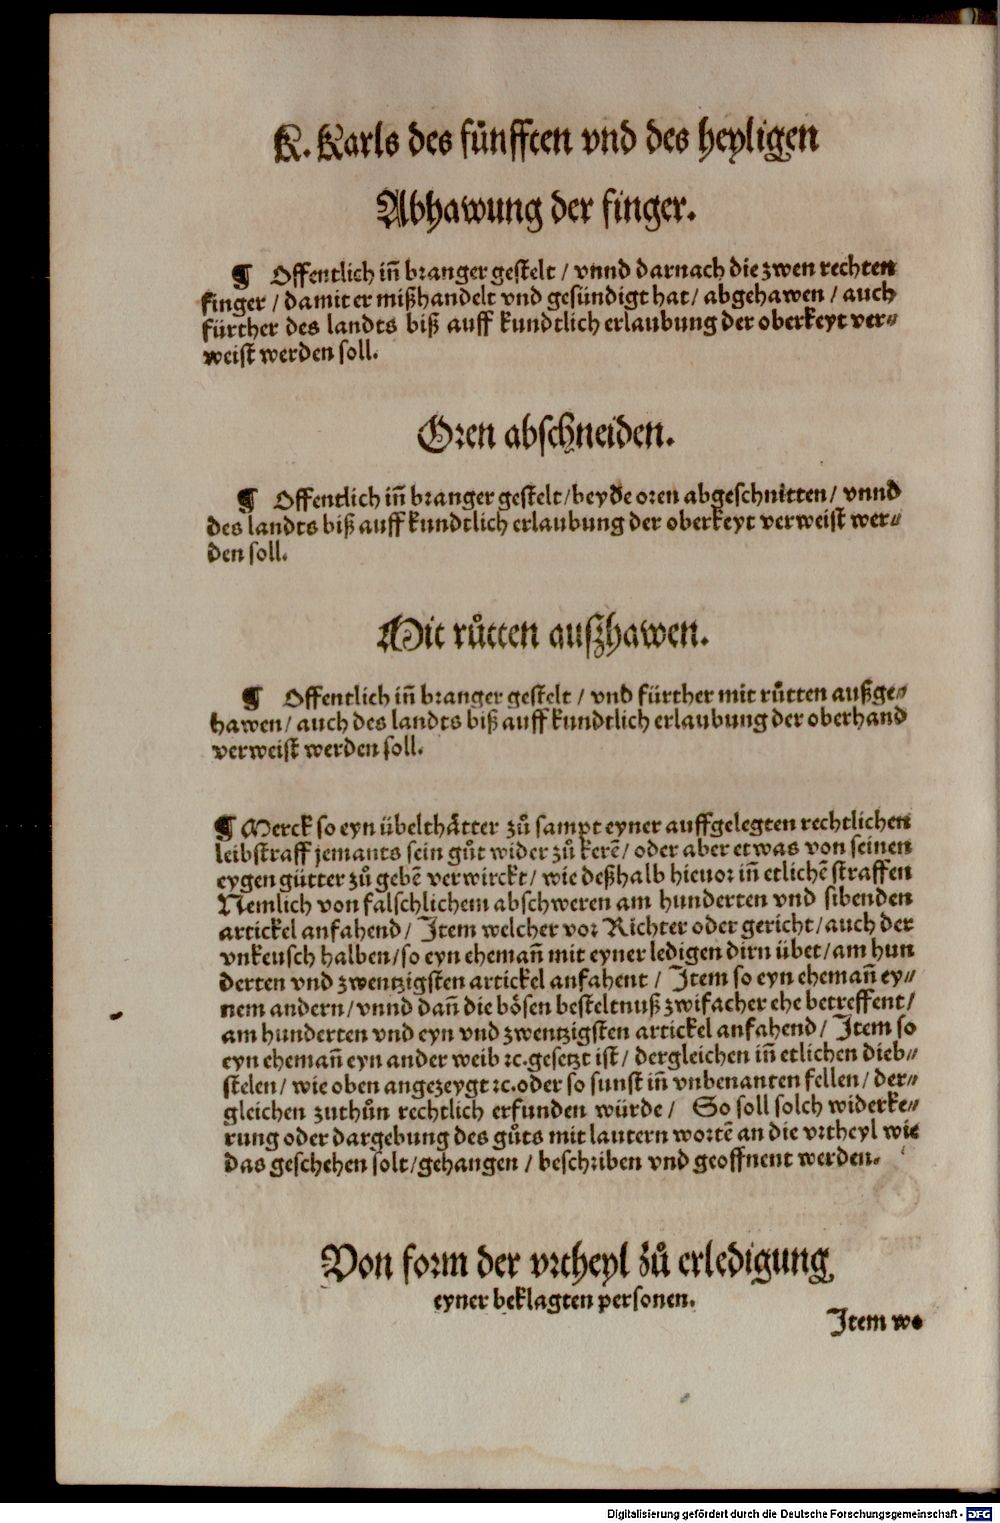 K. Karls des fünfften vnd des heyligen
Abhawung der finger.
¶ Offentlich iñ branger gestelt / vnnd darnach die zwen rechten
finger / damit er mißhandelt vnd gesündigt hat / abgehawen / auch
fürther des landts biß auff kundtlich erlaubung der oberkeyt ver⸗
weist werden soll.
Oren abschneiden.
¶ Offentlich iñ branger gestelt / beyde oren abgeschnitten / vnnd
des landts biß auff kundtlich erlaubung der oberkeyt verweist wer⸗
den soll.
Mit růtten außhawen.
¶ Offentlich iñ branger gestelt / vnd fürther mit růtten außge⸗
hawen / auch des landts biß auff kundtlich erlaubung der oberhand
verweist werden soll.
¶ Merck so eyn übelthätter zů sampt eyner auffgelegten rechtlichen
leibstraff jemants sein gůt wider zů kerē / oder aber etwas von seinen
eygen gütter zů gebē verwirckt / wie deßhalb hieuor iñ etlichē straffen
Nemlich von falschlichem abschweren am hunderten vnd sibenden
artickel anfahend / Item welcher vor Richter oder gericht / auch der
vnkeusch halben / so eyn ehemañ mit eyner ledigen dirn übet / am hun
derten vnd zwentzigsten artickel anfahent / Item so eyn ehemañ ey⸗
nem andern / vnnd dañ die bösen besteltnuß zwifacher ehe betreffent /
am hunderten vnd eyn vnd zwentzigsten artickel anfahend / Item so
eyn ehemañ eyn ander weib ꝛc. gesetzt ist / dergleichen iñ etlichen dieb⸗
stelen / wie oben angezeygt ꝛc. oder so sunst iñ vnbenanten fellen / der⸗
gleichen zuthůn rechtlich erfunden würde / So soll solch widerke⸗
rung oder dargebung des gůts mit lautern wortē an die vrtheyl wie
das geschehen solt / gehangen / beschriben vnd geoffnent werden.
Von form der vrtheyl zů erledigung
eyner beklagten personen.
Item wo
Digitalisierung gefördert durch die Deutsche Forschungsgemeinschaft - DFG